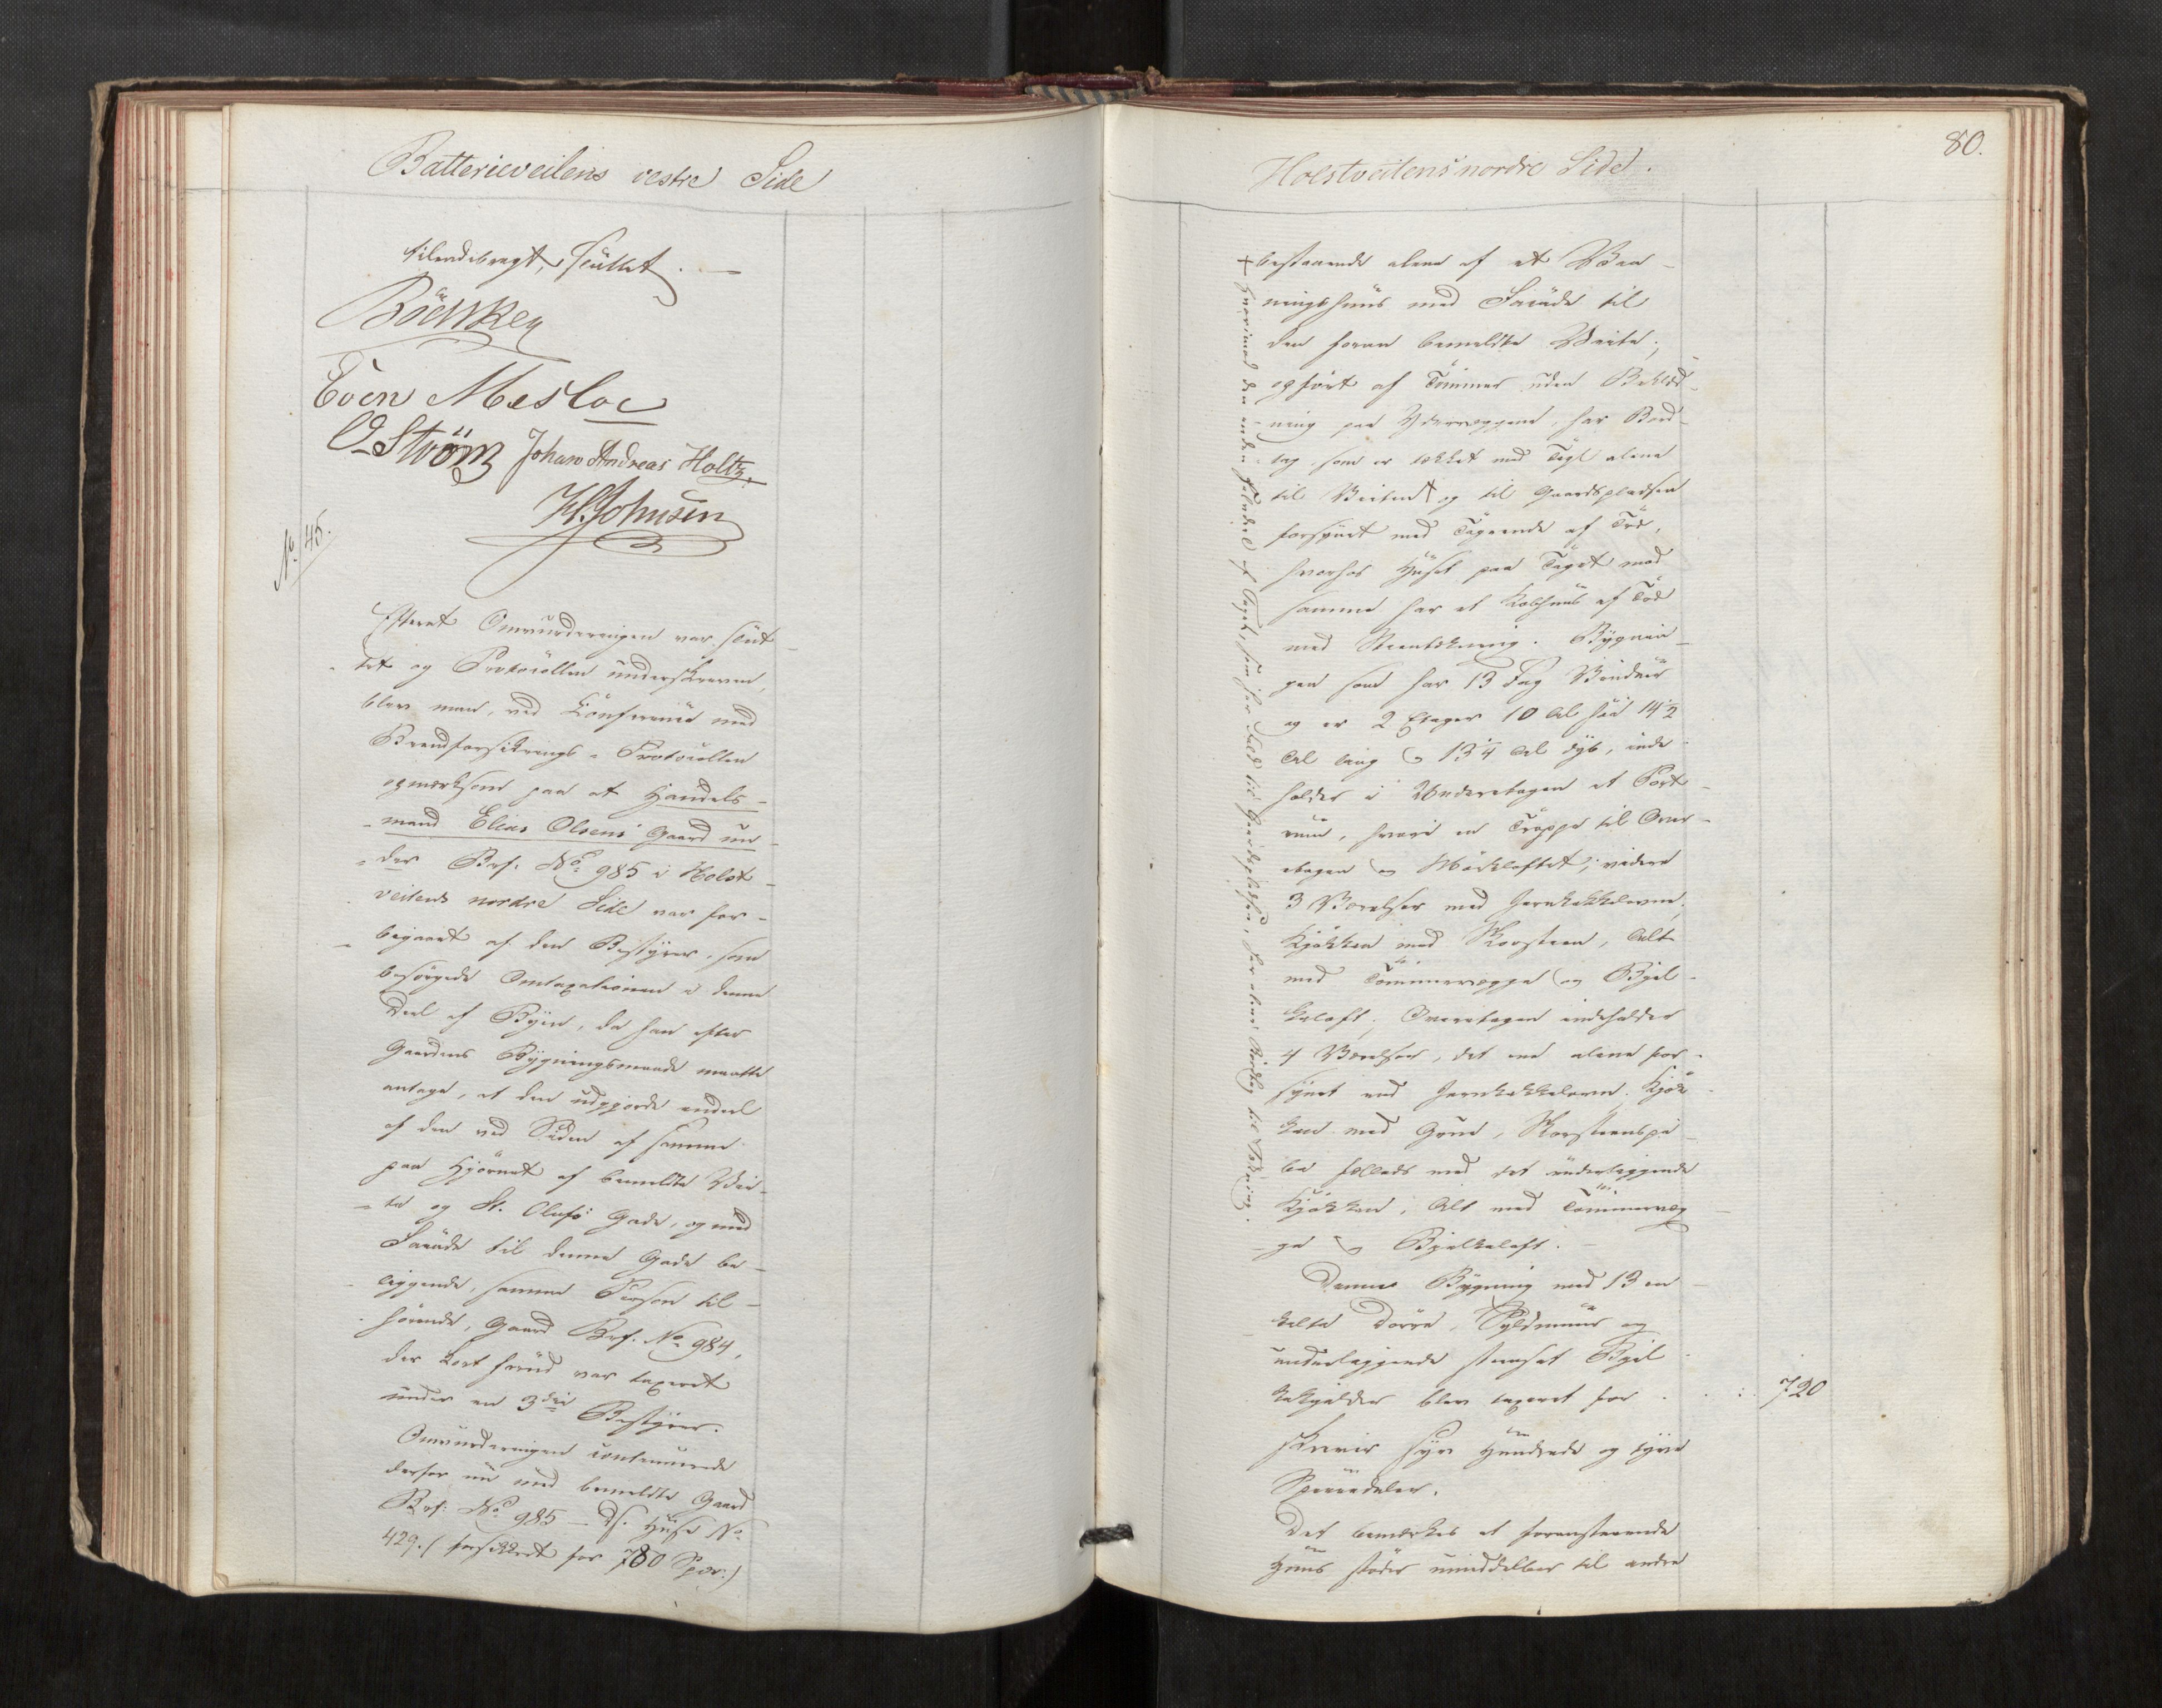 Batterieveitens vestre Side
tilendebragt, sluttet. —
Bödtker
Even Mesloe
O Ström Johan Andreas Holtz.
H. Johnsen
No 45.
Efterat Omvurderingen var slut-
tet og Protocollen underskreven,
blev man, ved Conference med
Brandforsikrings-Protocollen
opmærksom paa at Handels-
mand Elias Olsens Gaard un-
der Brf: No 985 i Holst-
veitens nordre Side var for-
bigaaet af den Bestyrer, som
besörgede Omtaxationen i denne
Deel af Byen, da han efter
Gaardens Bygningsmaade maatte
antage, at den udgjorde endeel
af den ved Siden af samme
paa Hjörnet af bemeldte Vei-
te og St. Olufs Gade, og med
Facade til denne Gade be-
liggende, samme Person til-
hörende, Gaard Brf. No 984,
der kort forud var taxeret
under en 3die Bestyrer.
Omvurderingen continuerede
derfor nu med bemeldte Gaard
Brf: No 985 — Ds. Huse No
429. (forsikkret for 780 Spd:)
80.
Holstveitens nordre Side.
bestaaende alene af et Vaa-
ningshuus med Facade til
den foran bemeldte Veite;
opfört af Tömmer uden Beklæd-
ning paa Ydervæggene, har Bord-
tag som er tækket med Tegl alene
til Veiten † og til Gaardspladsen
forsynet med Tagrende af Træ,
hvorhos Huset paa Taget mod
samme har et Kobhuus af Træ
med Steentækning. Bygnin-
gen som har 13 Fag Vinduer
og er 2 Etager 10 Al höi 14½
Al lang og 13¼ Al dyb, inde-
holder i Underetagen et Port-
rum, hvori en Trappe til Over-
etagen og Mörkloftet; videre
3 Værelser med Jernkakkelovne,
Kjökken med Skorsteen, Alt
med Tömmervægge og Bjel-
keloft. Overetagen indeholder
4 Værelser, det ene alene for-
synet med Jernkakkelovn. Kjök-
ken med Grue, Skorsteenspi-
be fælleds med det underliggende
Kjökken, Alt med Tömmervæg-
ge og Bjelkeloft.
Denne Bygning med 13 en-
kelte Dörre, Syldmuur og
underliggende steensat Bjel-
kekjelder blev taxeret for . . . : 720
skriver syv Hundrede og tyve
Speciedaler.
Det bemærkes at foranstaaende
Huus stöder umiddelbar til andre
† hvorimod den anden Halvdeel af Taget, som har Fald til Gaardspladsen, har alene Bordtag til Tækning.